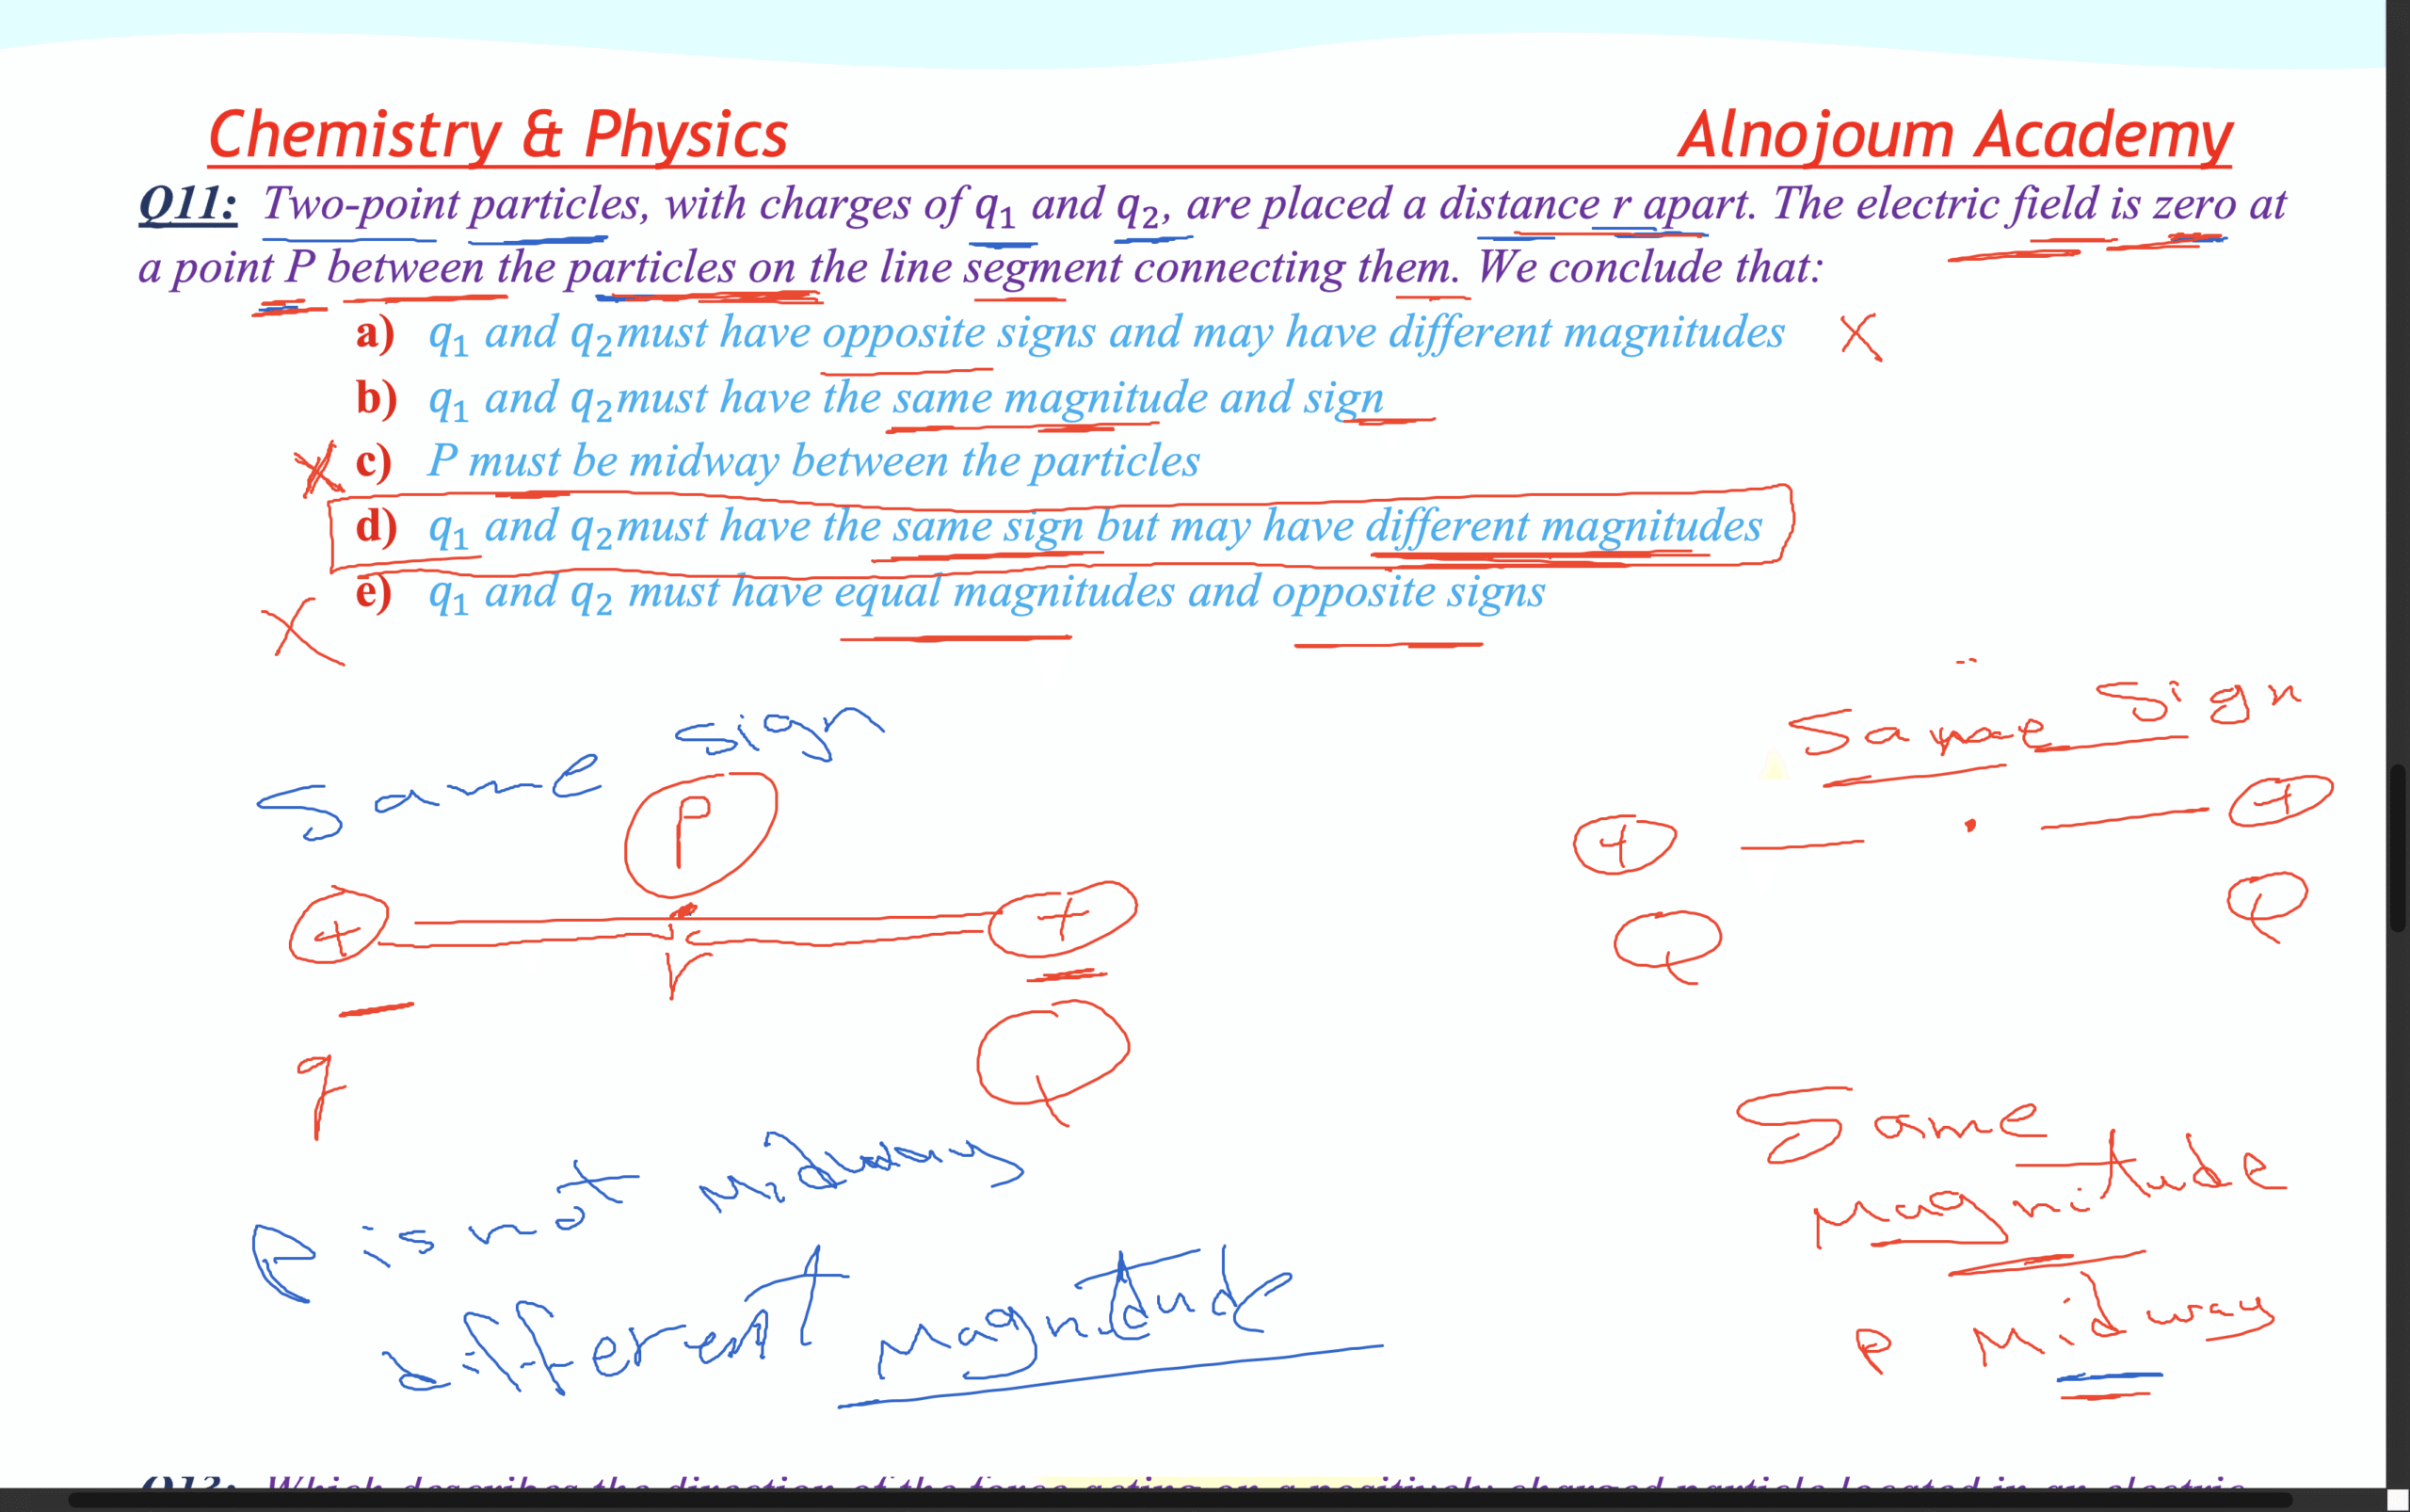 Chemistry & Physics Alnojoum Academy
Q11: Two-point particles, with charges of q₁ and q₂, are placed a distance r apart. The electric field is zero at
a point P between the particles on the line segment connecting them. We conclude that:
a) q₁ and q₂must have opposite signs and may have different magnitudes
b) q₁ and q₂must have the same magnitude and sign
c) P must be midway between the particles
d) q₁ and q₂must have the same sign but may have different magnitudes
e) q₁ and q₂ must have equal magnitudes and opposite signs
Same sign
P
+ +
r
q Q
P is not midway
different magnitude
Same sign
+ +
Q Q
Same
magnitude
P midway
Q13: Which describes the direction of the force acting on a positively charged particle located in an electric